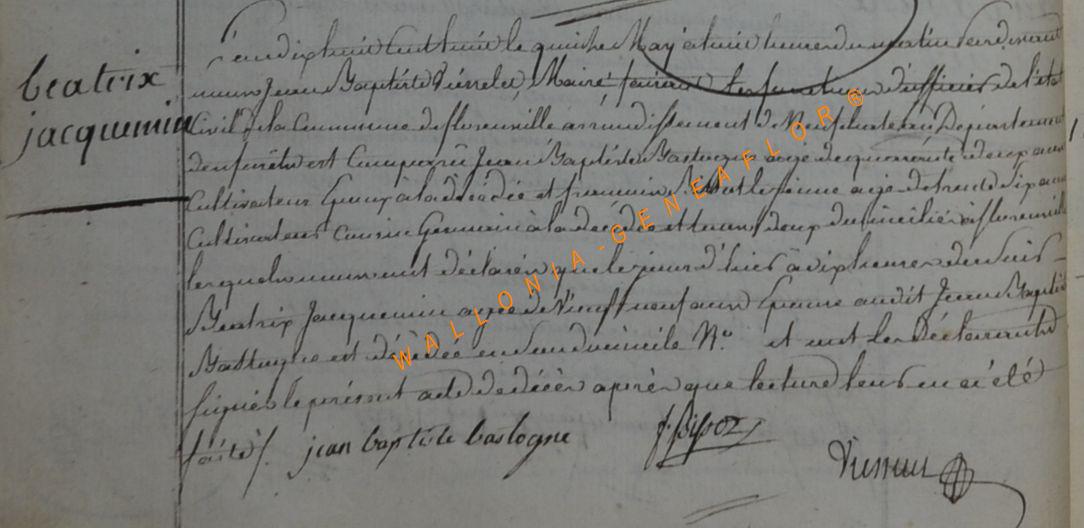 beatrix
jacquemin
L'an dix huit cent huit le quinze May à huit heures du matin pardevant
nous Jean Baptiste Maire faisant les fonctions d'officier de l'etat
Civil de la Commune de florenville arrondissement de Neufchateau Département
des forêts est Comparu Jean Baptiste Bastogne agé de quarante deux ans
Cultivateur Epoux à la décédée et le jeune agé de trente six ans
Cultivateur Cousin Germain à la décédée et tous deux domiciliés à florenville
lesquels nous ont déclarés que le jour d'hier à dix heures du soir
Beatrix Jacquemin agée de vingt neuf ans Epouse audit Jean Baptiste
Bastogne est décédée en son domicile N.° et ont les Déclarants
signés le présent acte de décès après que lecture leur en a été
faite /. jean baptiste bastogne
WALLONIA-GENEAFLOR®